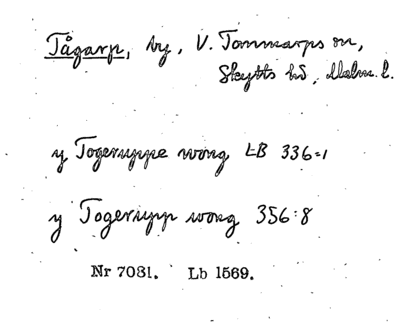 Tågarp, by, V. Tommarps sn,
Skytts hd, Malm. l.
y Togeruppe wong LB 336:1
y Togerupp wong 356:8
Nr 7031. Lb 1569.